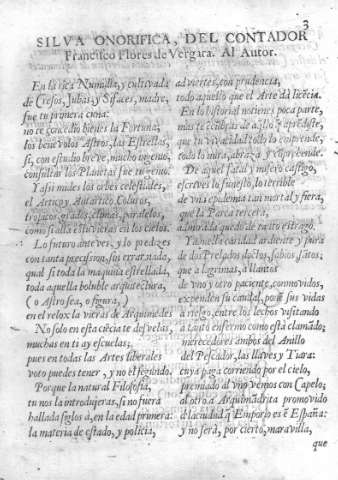 3
SILVA ONORIFICA, DEL CONTADOR
Francisco Flores de Vergara. Al Autor.
En la rica Numidia, y cultivada
de Cresos, Jubas, y Sifaces, madre,
fue tu primera cuna:
no te concedio bienes la Fortuna;
los benevolos Astros, las Estrellas,
si, con estudio breve, mucho ingenio,
consultar los Planetas fue tu genio.
Y assi mides los orbes celestiales,
el Artico, y Antartico, Coluros,
tropicos, grados, climas, paralelos,
como si alla estuvieras en los cielos.
Lo futuro antevès, y lo predizes
con tanta precision, sin errar nada,
qual si toda la maquina estrellada,
toda aquella boluble arquitectura,
(o Astrosfea, o figura,)
en el relox la vieras de Arquimedes
No solo en esta ciēcia te desvelas,
muchas en ti ay escuelas,
pues en todas las Artes liberales
voto puedes tener, y no el segundo.
Porque la natural Filosofia,
tu nos la introdujeras, si no fuera
hallada siglos à, en la edad primera:
la materia de estado, y policia,
adviertes, con prudencia,
todo aquello que el Arte dà licēcia.
En lo historial no tienes poca parte,
mas te
que tu vivacidad todo lo emprende,
todo lo mira, abraza, y comprehende.
De aquel fatal y misero castigo,
escrives lo funesto, lo terrible
de vna epidemia tan mortal y fiera,
que la Parca tercera,
admirada quedò de tanto estrago.
Ya en ella caridad ardiente y pura
de dos Prelados doctos, sabios, sātos;
que a lagrimas, a llantos
de vno y otro paciente, conmovidos,
expenden su caudal, ponē sus vidas
a riesgo, entre los lechos visitando
à tanto enfermo como està clamādo;
merecedores ambos del Anillo
del Pescador, las llaves y Tiara:
cuya paga corriendo por el cielo,
premiado al vno vemos con Capelo;
al otro a Arquimādrita promovido
a la ciudad q̄ Emporio es ē España:
y no serà, por cierto, maravilla,
que